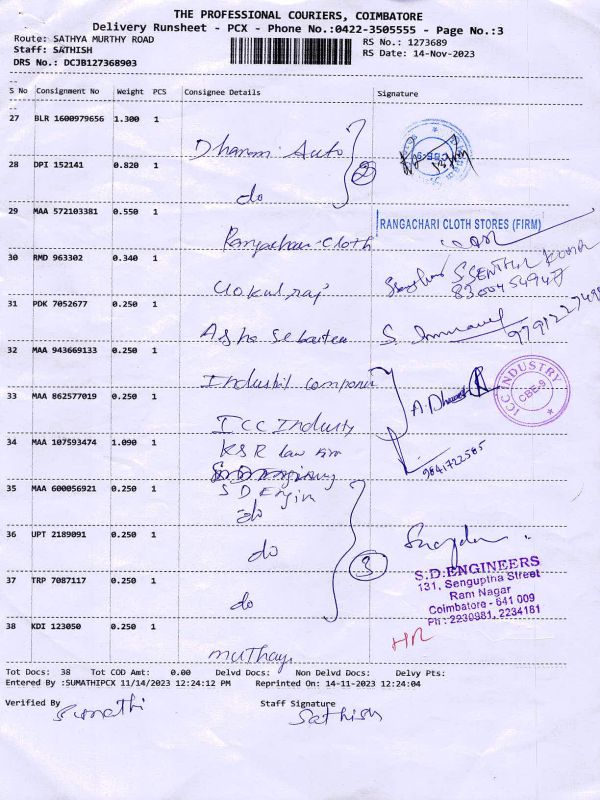 THE PROFESSIONAL COURIERS, COIMBATORE
Delivery Runsheet - PCX - Phone No.:0422-3505555 - Page No.:3
Route: SATHYA MURTHY ROAD
RS No.: 1273689
Staff: SATHISH
RS Date: 14-Nov-2023
DRS No.: DCJB127368903
S No Consignment No Weight PCS Consignee Details Signature
27 BLR 1600979656 1.300 1
Dharani Auto
2
28 DPI 152141 0.820 1
do
29 MAA 572103381 0.550 1
RANGACHARI CLOTH STORES (FIRM)
Rangachari Cloth
30 RMD 963302 0.340 1
S SENTHIL KUMAR
Gokul raj
31 PDK 7052677 0.250 1
S.
Asha Sebastin
32 MAA 943669133 0.250 1
ICC INDUSTRY
CBE-9
33 MAA 862577019 0.250 1
ICC Industry
34 MAA 107593474 1.090 1
KSR law firm
9841722585
S D Engin
35 MAA 600056921 0.250 1
do
36 UPT 2189091 0.250 1
do
3
37 TRP 7087117 0.250 1
do
S.D.ENGINEERS
131, Senguptha Street
Ram Nagar
Coimbatore - 641 009
Ph : 2230981, 2234181
38 KDI 123050 0.250 1
Tot Docs: 38 Tot COD Amt: 0.00 Delvd Docs: Non Delvd Docs: Delvy Pts:
Entered By :SUMATHIPCX 11/14/2023 12:24:12 PM Reprinted On: 14-11-2023 12:24:04
Verified By Staff Signature
Sumathi Sathish